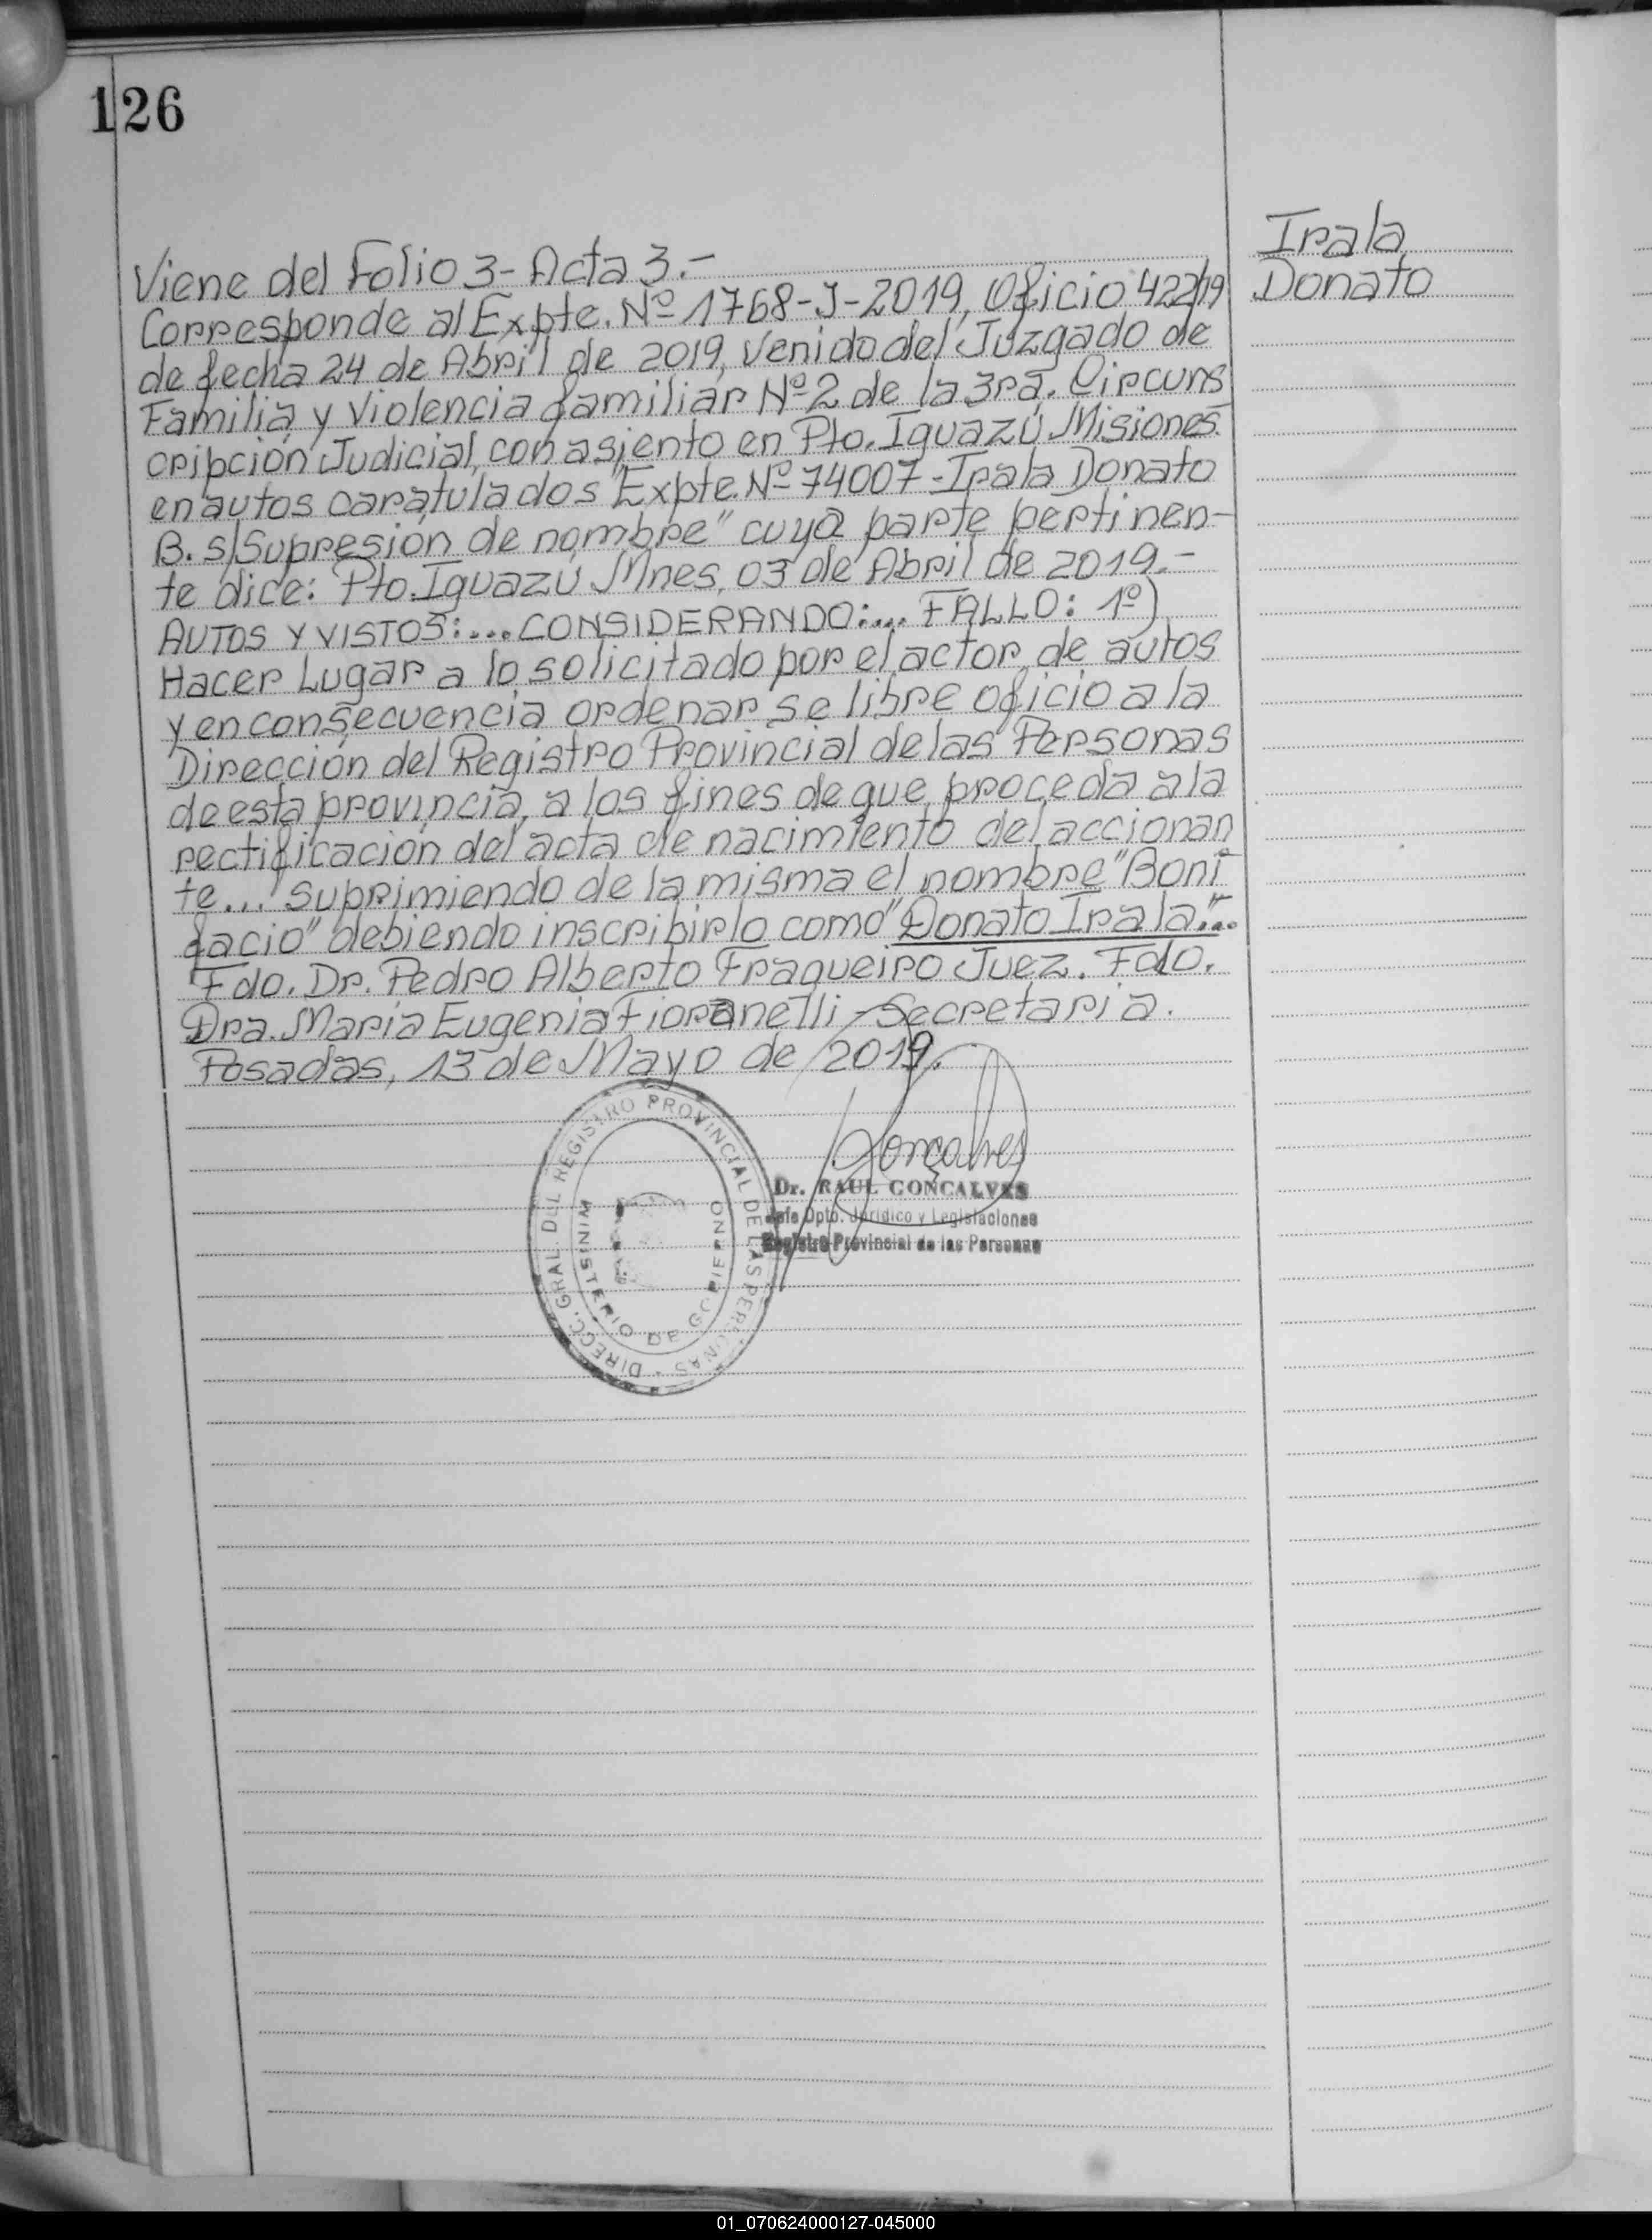 126
Irala
Donato
Viene del Folio 3- Acta 3.-
Corresponde al Expte. Nº 1768-J-2019, Oficio 422/19
de fecha 24 de Abril de 2019, Venido del Juzgado de
Familia y Violencia familiar Nº 2 de la 3ra. Circuns
cripción Judicial, con asiento en Pto. Iguazú Misiones.
en autos caratulados "Expte. Nº 74007-Irala Donato
B. s/Supresión de nombre" cuya parte pertinen-
te dice: Pto. Iguazú Mnes, 03 de Abril de 2019.-
AUTOS Y VISTOS:... CONSIDERANDO:... FALLO: 1º)
Hacer Lugar a lo solicitado por el actor de autos
y en consecuencia ordenar se libre oficio a la
Dirección del Registro Provincial de las Personas
de esta provincia, a los fines de que proceda a la
rectificación del acta de nacimiento del accionan
te... suprimiendo de la misma el nombre "Boni
facio" debiendo inscribirlo como "Donato Irala"...
Fdo. Dr. Pedro Alberto Fragueiro Juez. Fdo.
Dra. Maria Eugenia Fioranelli - Secretaria.
Posadas, 13 de Mayo de 2019.
DIRECC. GRAL. DEL REGISTRO PROVINCIAL DE LAS PERSONAS
MINISTERIO DE GOBIERNO
Goncalves
Dr. RAUL GONCALVES
Jefe Dpto. Jurídico y Legislaciones
Registro Provincial de las Personas
01_070624000127-045000